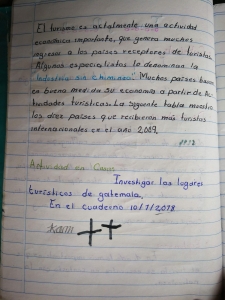 El turismo es actalmente una actividad
económica importante, que genera muchos
ingresos a los países receptores de turistas
Algunos especialistas lo denominan la
"Industria sin chimenea". Muchos países basan
en buena medida su economía a partir de
turísticas. La siguente tabla muestra
los diez países que recibieron más turistas
internacionales en el año 2009.
Actividad en Casa
Investigar los lugares
turísticos de guatemala,
En el cuaderno 10/7/2018